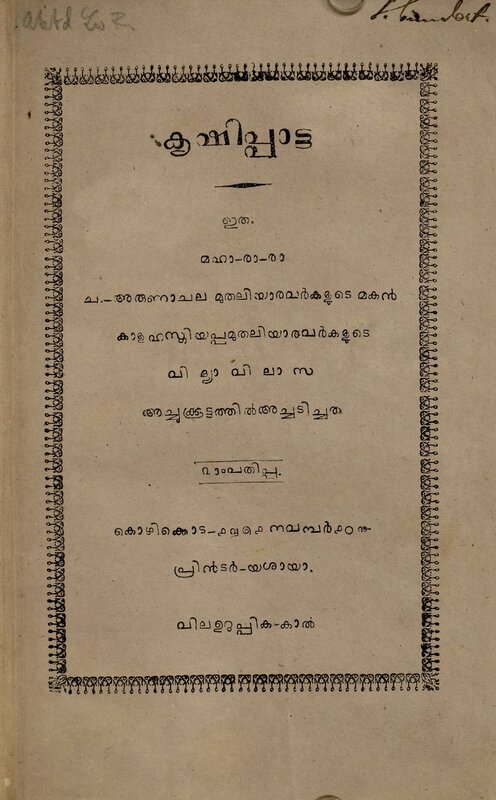 കൃഷിപ്പാട്ട
ഇത.
മഹാ-രാ-രാ
ച.-അരുണാചല മുതലിയാരവർകളുടെ മകൻ
കാളഹസ്തിയപ്പമുതലിയാരവർകളുടെ
വി ദ്യാ വി ലാ സ
അച്ചുക്കൂട്ടത്തിൽഅച്ചടിച്ചത
൨ാംപതിപ്പു.
കൊഴിക്കൊട-൧൮൭൧ നവമ്പർ൧൦൹
പ്രിൻടർ-യശായാ.
വിലഉറുപ്പിക-കാൽ